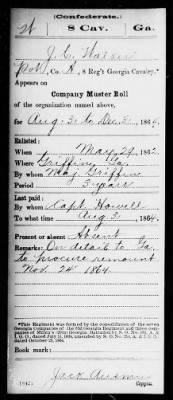 (Confederate.)
8 Cav. Ga.
J. C.
Pvt, Co. K, 8 Reg't Georgia Cavalry.*
Appears on
Company Muster Roll
of the organization named above,
for Aug. 31 to Dec. 31, 1864.
Enlisted:
When May 29, 1862.
Where Griffin, Ga.
By whom Maj. Griffin
Period 3 years
Last paid:
By whom Capt. Howell
To what time Aug 31, 1864.
Present or absent Absent
Remarks: On detail to Ga.
to procure remount
Nov. 24" 1864.
*This Regiment was formed by the consolidation of the seven
Georgia Companies of the
Book mark:
Copyist.